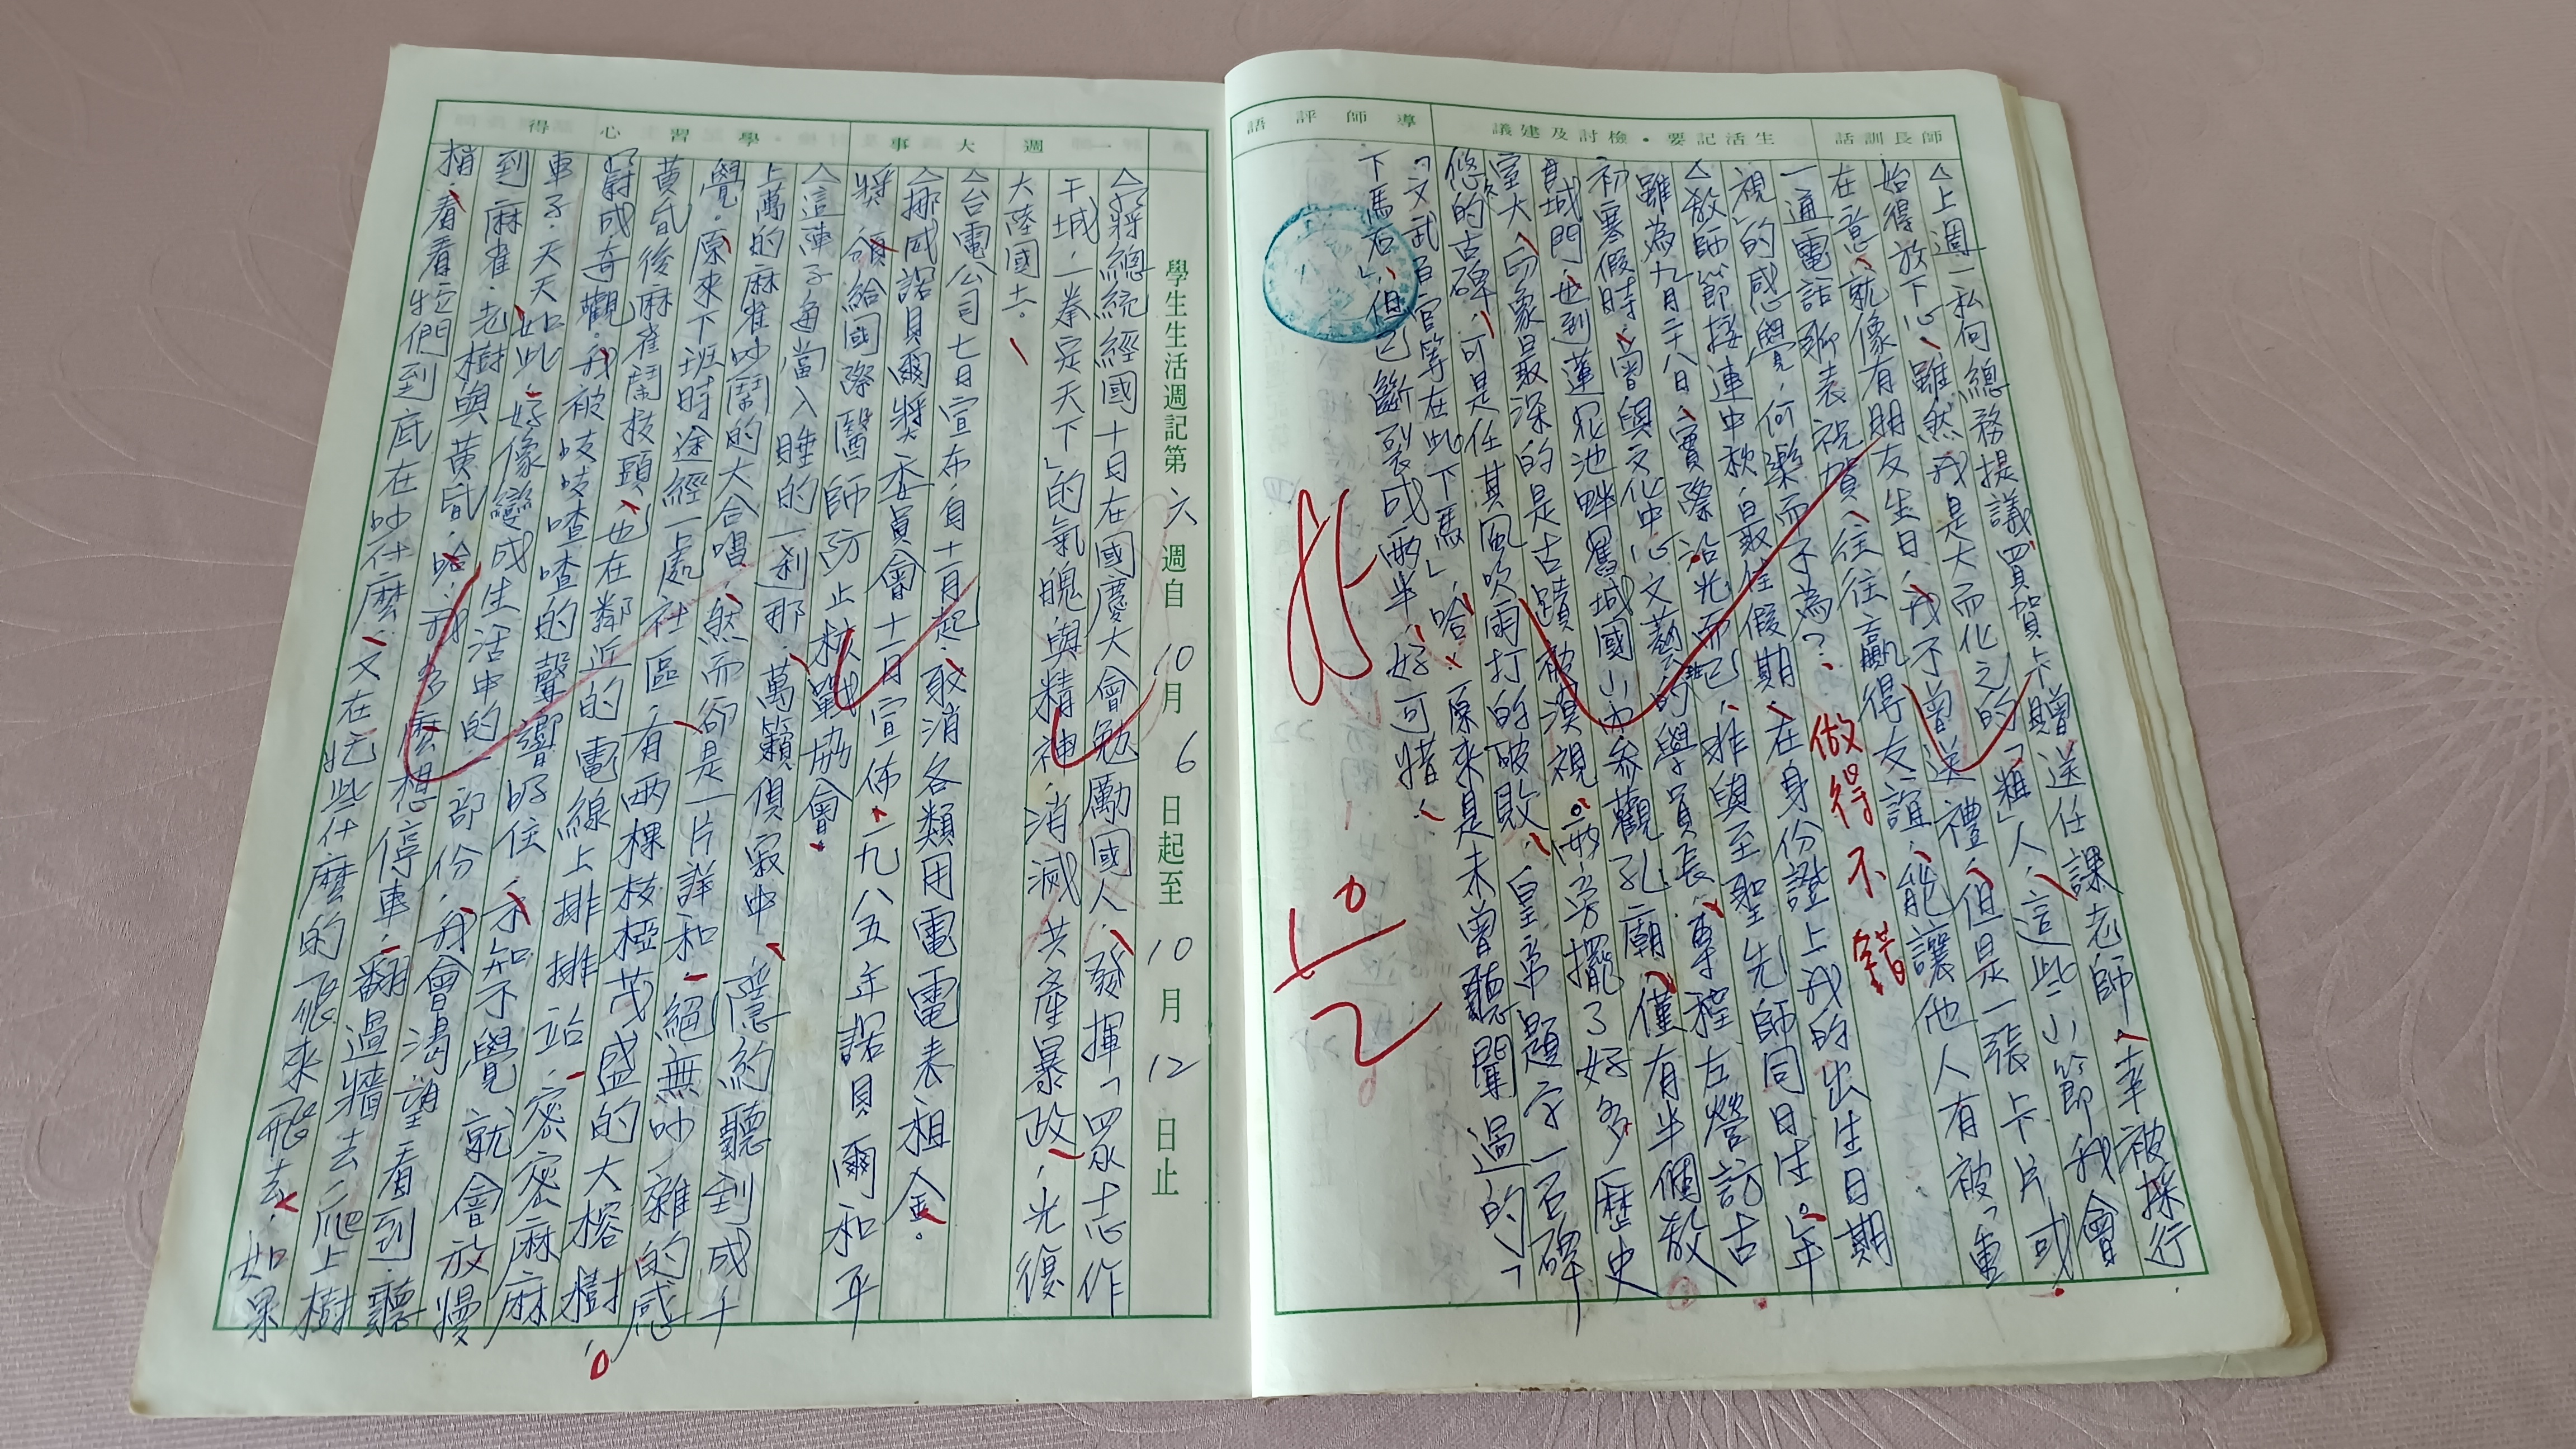 學生生活週記第六週自10月6日起至10月12日止
一週大事
學習心得
△蔣總統經國十日在國慶大會勉勵國人,發揮「眾志作
干城,一拳定天下」的氣魄與精神,消滅共產暴政,光復
大陸國土。
△台電公司七日宣布,自十一月起,取消各類用電電表租金。
△挪威諾貝爾獎委員會十一日宣佈,一九八五年諾貝爾和平
獎,頒給國際醫師防止核戰協會。
△這陣子,每當入睡的一剎那,萬籟俱寂中,隱約聽到成千
上萬的麻雀吵鬧的大合唱,然而卻是一片詳和,絕無吵雜的感
覺。原來下班時途經一處社區,有兩棵枝椏茂盛的大榕樹,
黃昏後麻雀鬧枝頭,也在鄰近的電線上排排站,密密麻麻
蔚成奇觀。我被吱吱喳喳的聲響吸住,不知不覺就會放慢
車子,天天如此,好像變成生活中的一部份,我會渴望看到、聽
到麻雀、老樹與黃昏,哈,我多麼想停車,翻過牆去,爬上樹
梢,看看它們到底在吵什麼,又在忙些什麼的飛來飛去,如果
師長訓話
生活記要・檢討及建議
導師評語
△上週一私向總務提議買賀卡贈送任課老師,幸被採行
始得放下心,雖然我是大而化之的「粗」人,這些小節我會
在意,就像有朋友生日,我不曾送禮,但是一張卡片或
一通電話聊表祝賀,往往贏得友誼,能讓他人有被「重
視」的感覺,何樂而不為?
做得不錯
△教師節接連中秋,最佳假期,在身份證上我的出生日期
雖為九月二十八日,實際沾光而已,非與至聖先師同日生。年
初寒假時,曾與文化中心文藝的學員長,專程左營訪古
舊城門,也到蓮池畔舊城國小參觀孔廟,僅有半個教
室大,印象最深的是古蹟被漠視。兩旁擺了好多歷史
悠久的古碑,可是任其風吹雨打的破敗,皇帝題字一石碑
「文武百官等在此下馬」,哈,原來是未曾聽聞過的「
下馬石」,但已斷裂成兩半,好可惜。